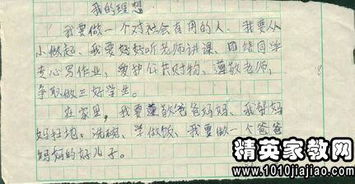 我的理想
我要做一个对社会有用的人。我要从
小做起、我要好好听老师讲课、团结同学
专心写作业、爱护公共财物、尊敬老师，
争取做三好学生。
在家里，我要尊敬爸爸妈妈、我帮妈
妈扫地、洗碗、学做饭、我要做一个爸爸
妈妈的好儿子。
精英家教网
www.1010jiajiao.com